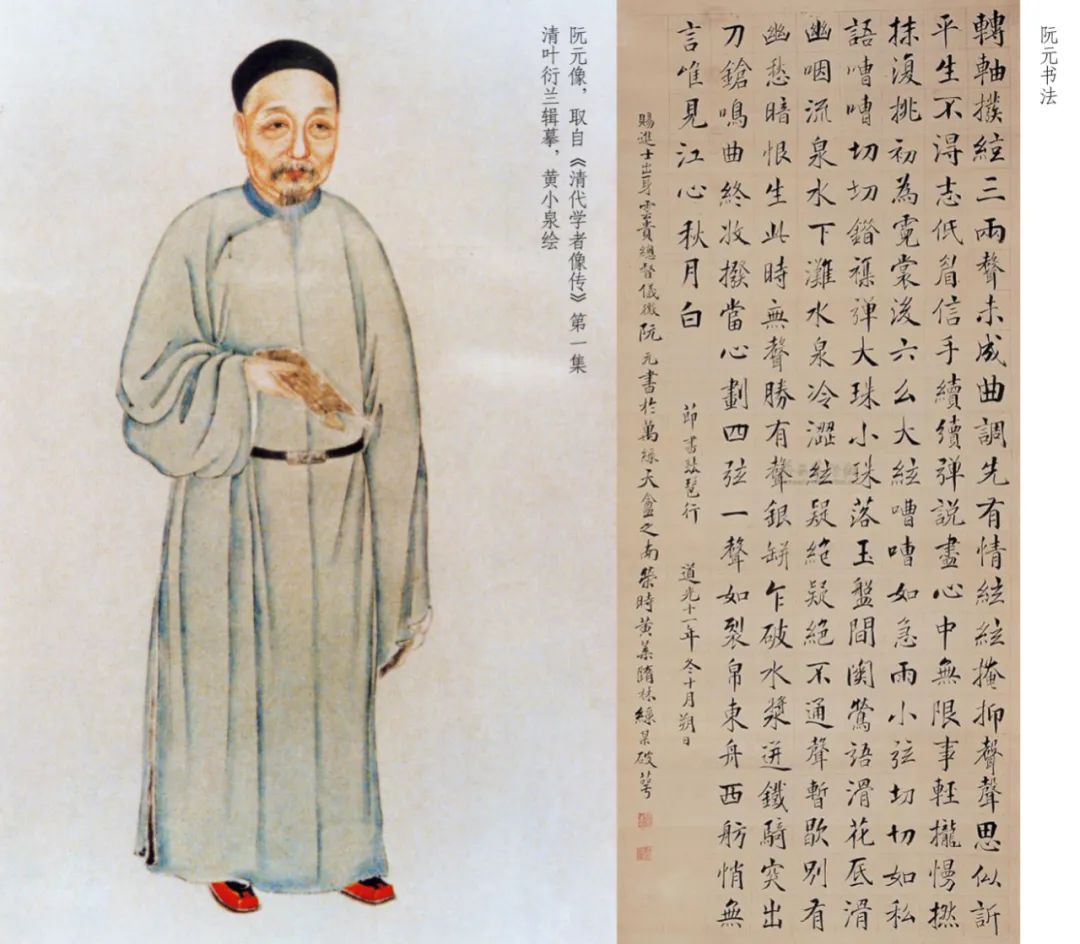 阮元像，取自《清代学者像传》第一集
清叶衍兰辑摹，黄小泉绘
阮元书法
轉軸撥絃三兩聲未成曲調先有情絃絃掩抑聲聲思似訴
平生不得志低眉信手續續弹說盡心中無限事輕攏慢撚
抹復挑初為霓裳後六么大絃嘈嘈如急雨小弦切切如私
語嘈嘈切切錯襍弹大珠小珠落玉盤間関鶯語滑花底滑
幽咽流泉水下灘水泉冷澀絃疑絶疑絶不通聲暫歇别有
幽愁暗恨生此時無聲勝有聲銀缾乍破水漿迸鐵騎突出
刀鎗鳴曲終收撥當心劃四弦一聲如裂帛東舟西舫悄無
言唯見江心秋月白
節書琵琶行 道光十一年冬十月朔日
賜進士出身雲貴總督儀徵阮元書於萬綠天龕之南榮時黃葉隨林綠某破萼